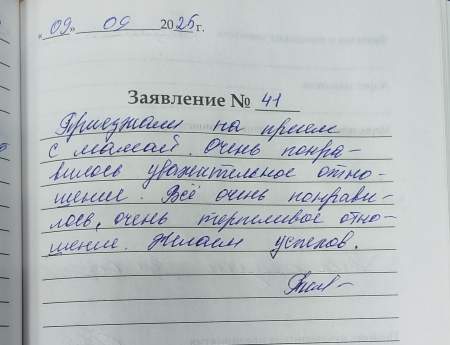 «09» 09 2025 г.
Заявление № 41
Приезжали на прием
с мамой. Очень понра-
вилось уважительное отно-
шение. Всё очень понрави-
лось, очень терпеливое отно-
шение. Желаем успехов.